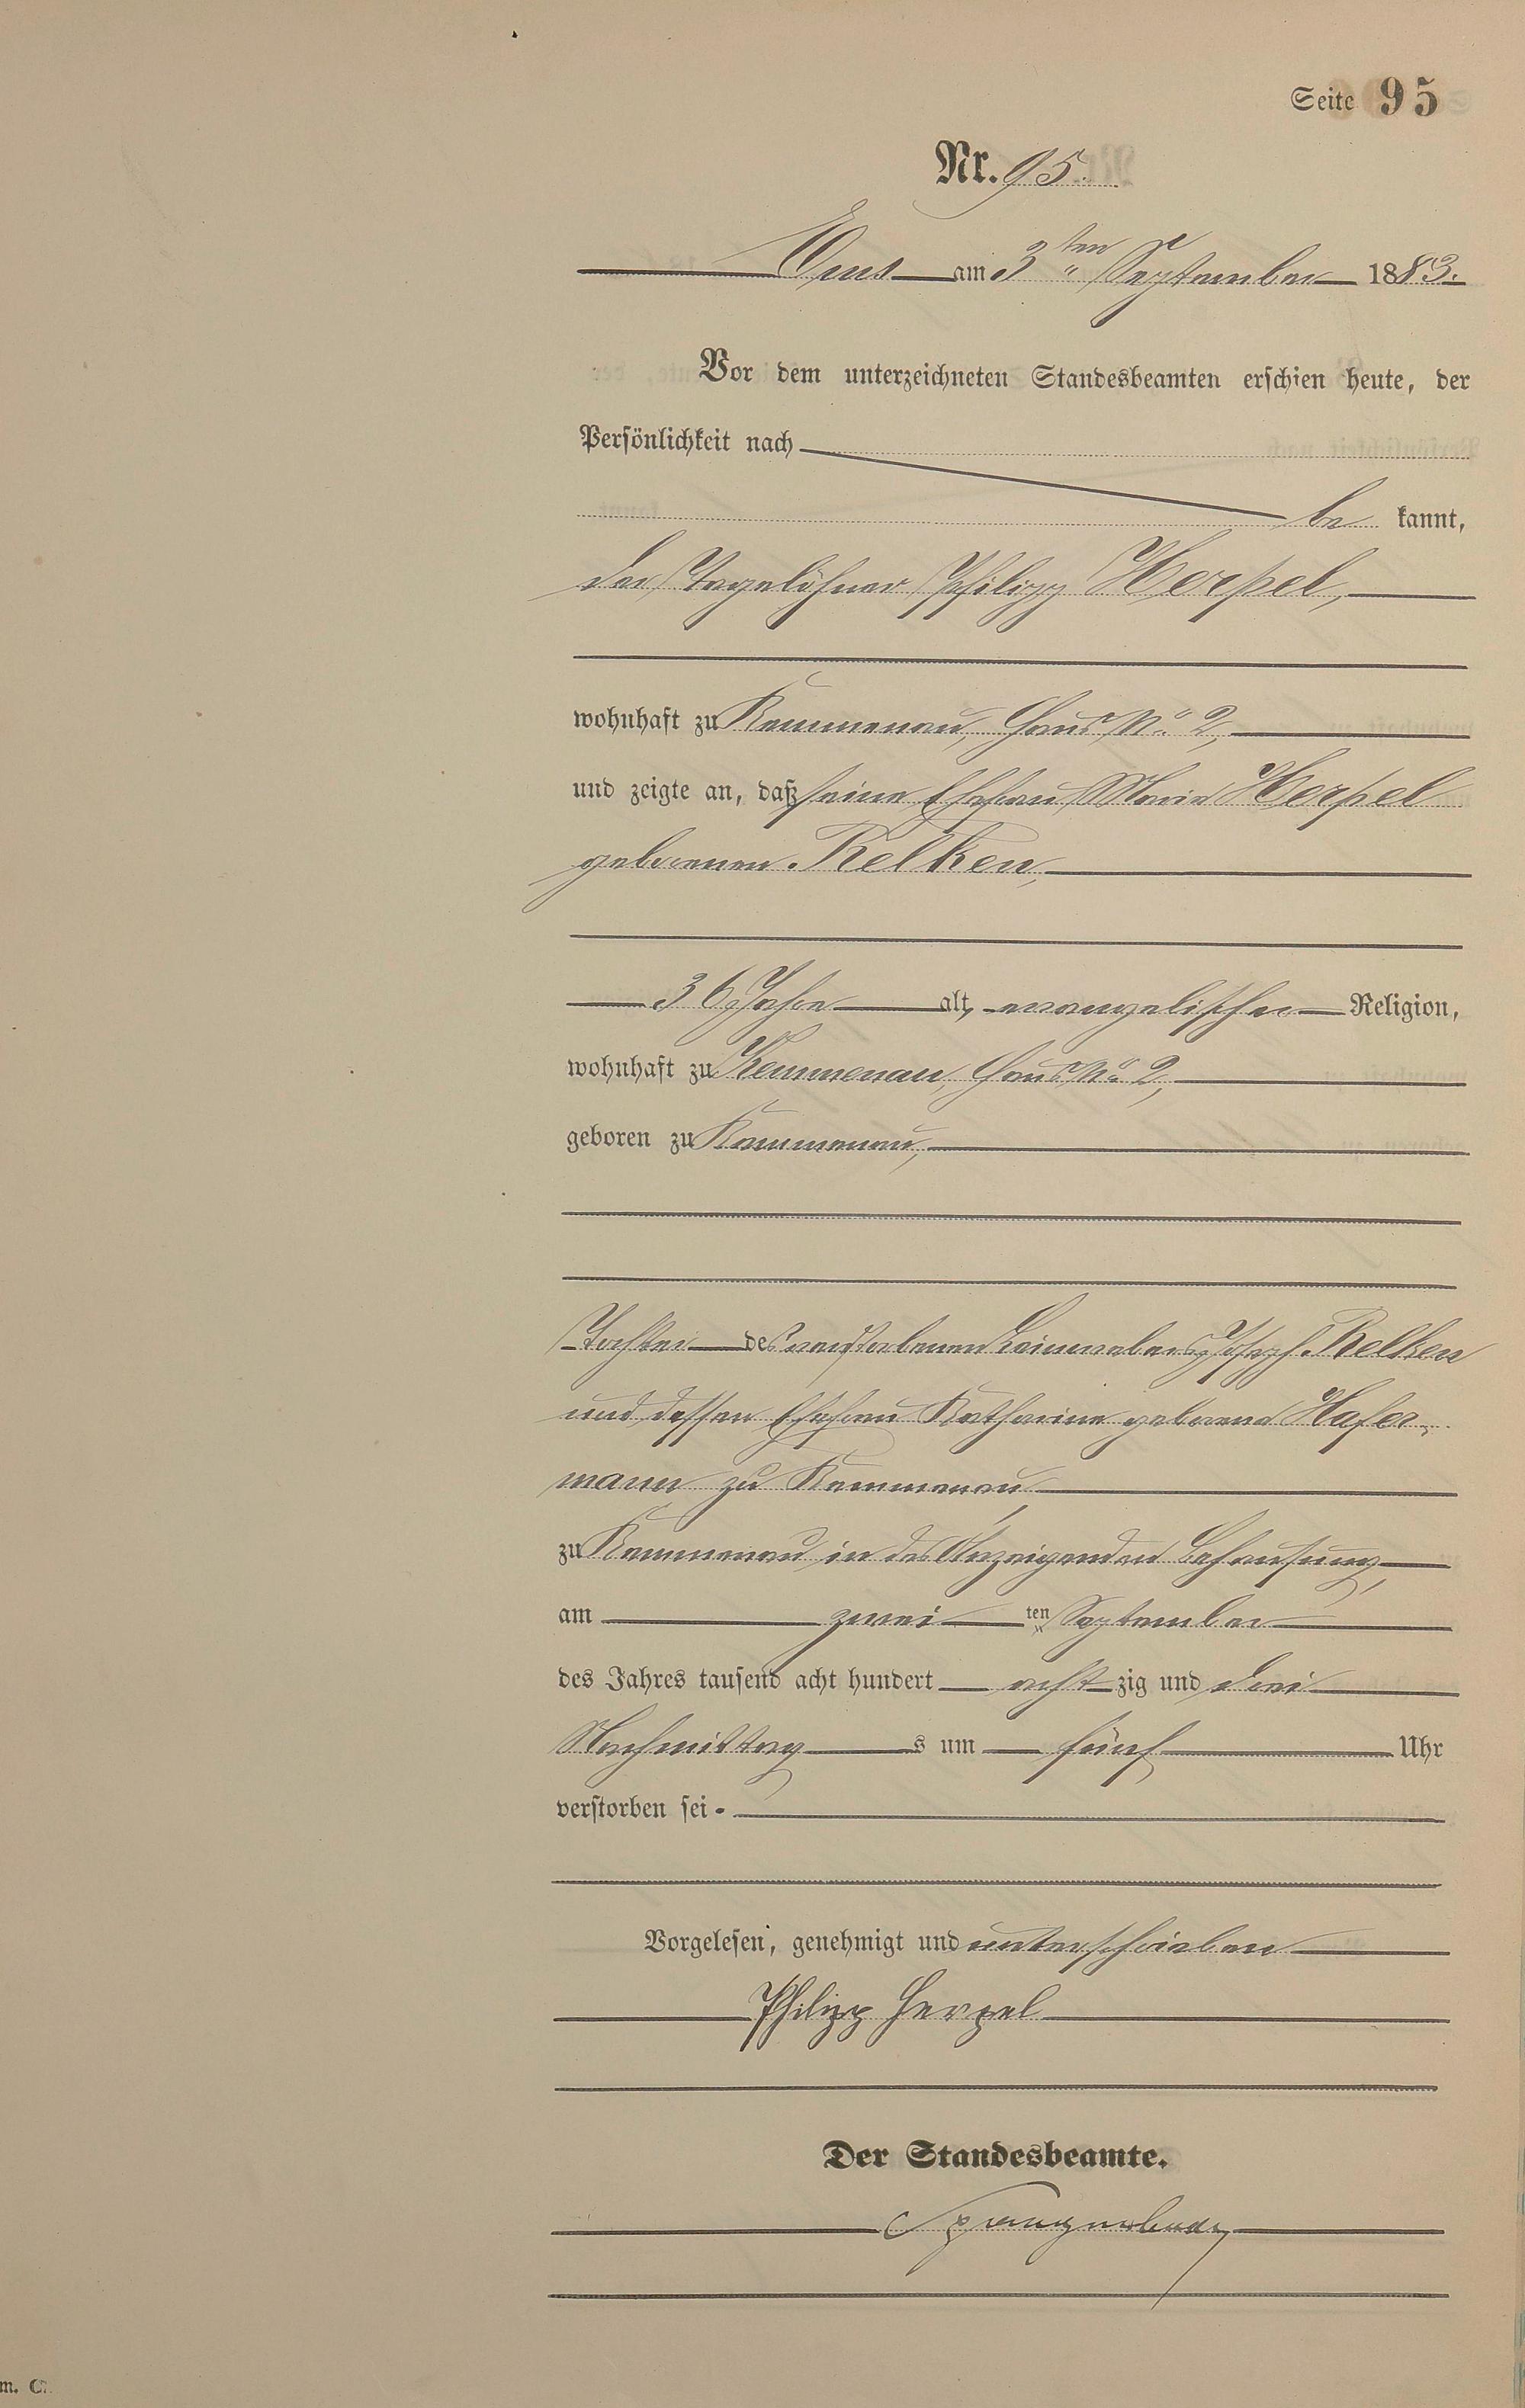 Seite 95
Nr. 95.
Ems am 3ten September 1883.
Vor dem unterzeichneten Standesbeamten erschien heute, der
Persönlichkeit nach
be kannt,
der Tagelöhner Philipp Herpel,
wohnhaft zu Kemmenau, Haus No. 2,
und zeigte an, daß seine Ehefrau Marie Herpel
geborenen Relken,
36 Jahre alt, evangelischer Religion,
wohnhaft zu Kemmenau, Haus No. 2,
geboren zu Kemmenau,
Tochter des verstorbenen Leinewebers Joseph Relken
und dessen Ehefrau Katharine geborene Hafer-
mann zu Kemmenau,
zu Kemmenau in des Anzeigenden Behausung,
am zwei ten September
des Jahres tausend acht hundert acht zig und drei
Nachmittag s um fünf Uhr
verstorben sei.
Vorgelesen, genehmigt und unterschrieben
Philipp Herpel
Der Standesbeamte.